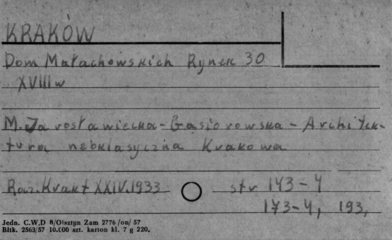 KRAKÓW
Dom Małachowskich Rynek 30
XVIII w
M. Jarosławiecka-Gąsiorowska - Architek-
tura neoklasyczna Krakowa
Roz. Krakt XXIV. 1933 str 143-4
173-4, 193,
Jedn. C.W.D 8/Olsztyn Zam 2776 /on/ 57
Bltk. 2563/57 10.000 szt. karton kl. 7 g 220.